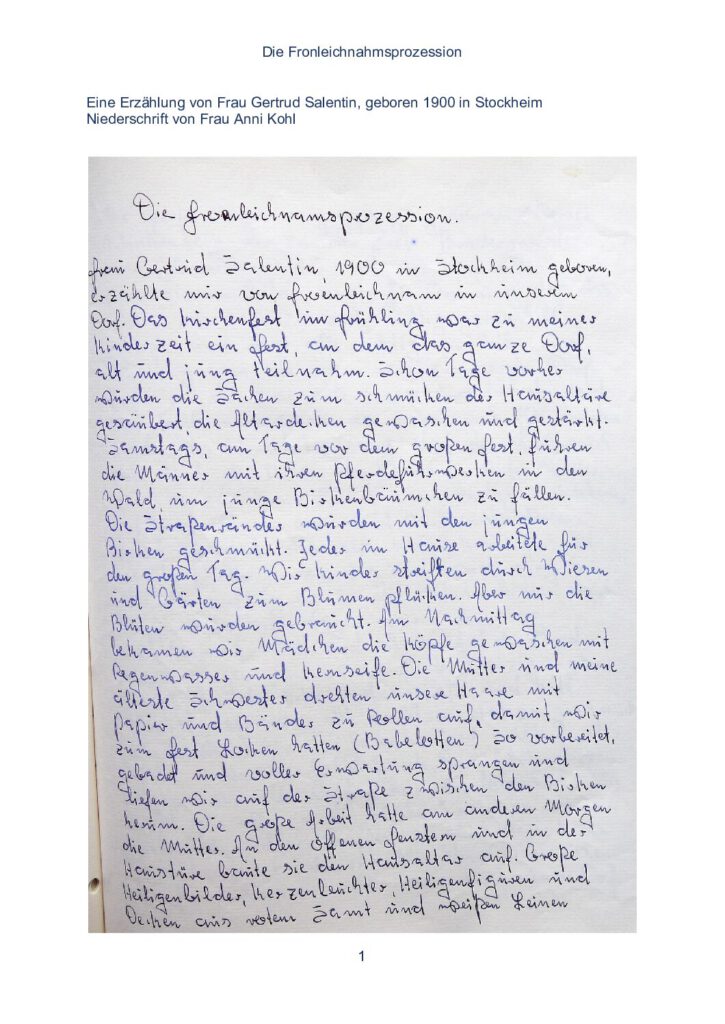 Die Fronleichnahmsprozession
Eine Erzählung von Frau Gertrud Salentin, geboren 1900 in Stockheim
Niederschrift von Frau Anni Kohl
Die Fronleichnamsprozession.
Frau Gertrud Salentin, 1900 in Stockheim geboren,
erzählte mir von Fronleichnam in unserem
Dorf. Das Kirchenfest im Frühling war zu meiner
Kinderzeit ein Fest, an dem das ganze Dorf,
alt und jung teilnahm. Schon Tage vorher
wurden die Sachen zum schmücken der Hausaltäre
gesäubert, die Altardecken gewaschen und gestärkt.
Samstags, am Tage vor dem großen Fest, fuhren
die Männer mit ihren Pferdefuhrwerken in den
Wald, um junge Birkenbäumchen zu fällen.
Die Straßenränder wurden mit den jungen
Birken geschmückt. Jeder im Hause arbeitete für
den großen Tag. Wir Kinder streiften durch Wiesen
und Gärten zum Blumen pflücken. Aber nur die
Blüten wurden gebraucht. Am Nachmittag
bekamen wir Mädchen die Köpfe gewaschen mit
Regenwasser und Kernseife. Die Mutter und meine
älteste Schwester drehten unsere Haare mit
Papier und Bänder zu Rollen auf, damit wir
zum Fest Locken hatten (Babelotten) So vorbereitet,
gebadet und voller Erwartung sprangen und
liefen wir auf der Straße zwischen den Birken
herum. Die große Arbeit hatte am anderen Morgen
die Mutter. An den offenen Fenstern und in der
Haustüre baute sie den Hausaltar auf. Große
Heiligenbilder, Kerzenleuchter, Heiligenfiguren und
Decken aus rotem Samt und weißen Leinen
1